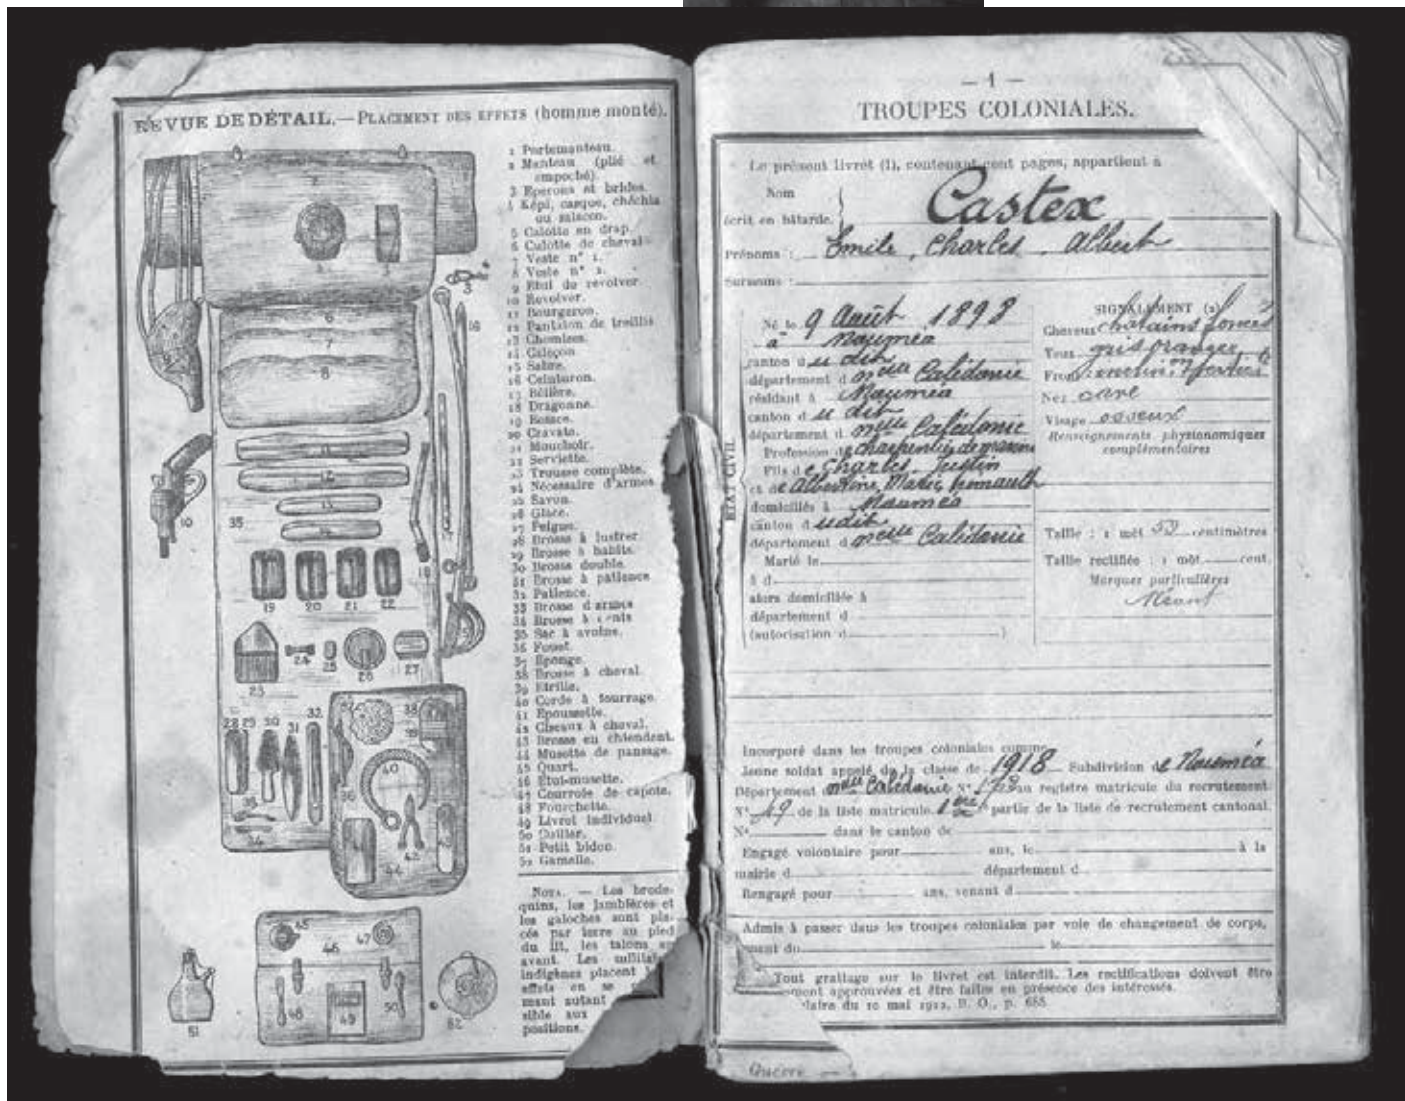 REVUE DE DÉTAIL. — PLACEMENT DES EFFETS (homme monté).
1 Portemanteau.
2 Manteau (plié et
empoché).
3 Eperons et brides.
4 Képi, casque, chéchia
ou salacco.
5 Culotte en drap.
6 Culotte de cheval
7 Veste n° 1.
8 Veste n° 2.
9 Etui de revolver.
10 Revolver.
11 Bourgeron.
12 Pantalon de treillis
13 Chemises.
14 Caleçon
15 Sabre.
16 Ceinturon.
17 Bélière.
18 Dragonne.
19 Besace.
20 Cravate.
21 Mouchoir.
22 Serviette.
23 Trousse complète.
24 Nécessaire d'armes
25 Savon.
26 Glace.
27 Peigne.
28 Brosse à lustrer
29 Brosse à habits.
30 Brosse double.
31 Brosse à patience
32 Patience.
33 Brosse d'armes
34 Brosse à
35 Sac à avoine.
36 Fouet.
37 Eponge.
38 Brosse à cheval
39 Etrille.
40 Corde à fourrage.
41 Epoussette.
42 Ciseaux à cheval.
43 Brosse en chiendent.
44 Musette de pansage.
45 Quart.
46 Etui-musette.
47 Courroie de capote.
48 Fourchette.
49 Livret individuel
50 Cuiller.
51 Petit bidon.
52 Gamelle.
NOTA. — Les brode-
quins, les jambières et
les galoches sont pla-
cés par terre au pied
du lit, les talons en
avant. Les militai
indigènes placent
effets en se
mant autant
sible aux
positions.
— 1 —
TROUPES COLONIALES.
Le présent livret (1), contenant cent pages, appartient à
Nom
écrit en bâtarde. Castex
Prénoms : Emile, Charles, Albert
Surnoms :
ÉTAT CIVIL
Né le 9 Août 1898
à Nouméa
canton d u dit
département d nelle Calédonie
résidant à Nouméa
canton d u dit
département d nelle Calédonie
Profession de charpentier de marine
Fils de Charles Justin
et de Albertine, Marie
domiciliés à Nouméa
canton d u dit
département d nelle Calédonie
Marié le
à d
alors domiciliée à
département d
(autorisation d )
SIGNALEMENT (2)
Cheveux châtains foncés
Yeux gris
Front
Nez cave
Visage osseux
Renseignements physionomiques
complémentaires
Taille : 1 mèt 53 centimètres
Taille rectifiée : 1 mèt. cent.
Marques particulières
Néant
Incorporé dans les troupes coloniales comme
Jeune soldat appelé de la classe de 1918 Subdivision de Nouméa
Département nelle Calédonie N° au registre matricule du recrutement
N° 49 de la liste matricule. 1ère partie de la liste de recrutement cantonal.
N° dans le canton de
Engagé volontaire pour ans, le à la
mairie d département d
Rengagé pour ans, venant d
Admis à passer dans les troupes coloniales par voie de changement de corps,
nant du le
Tout grattage sur le livret est interdit. Les rectifications doivent être
ment approuvées et être faites en présence des intéressés.
laire du 10 mai 1912, B. O., p. 688.
Guerre